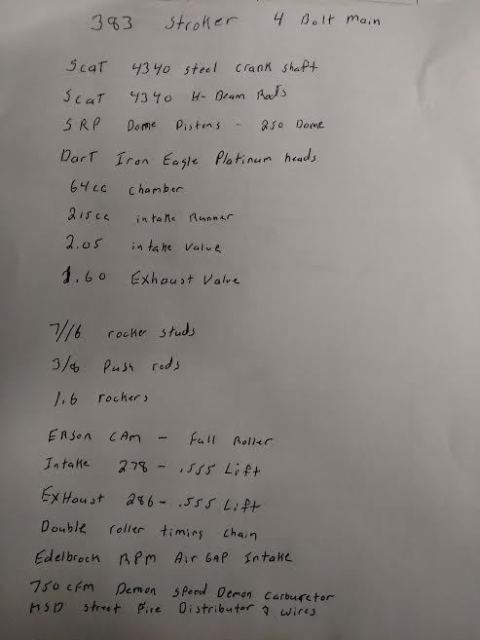 383 Stroker 4 Bolt Main
Scat 4340 steel crank shaft
Scat 4340 H-Beam Rods
SRP Dome Pistons - 250 Dome
Dart Iron Eagle Platinum heads
64cc chamber
215cc intake Runner
2.05 intake valve
1.60 Exhaust Valve
7/16 rocker studs
3/8 Push rods
1.6 rockers
Erson CAM - Full Roller
Intake 278 - .555 Lift
ExHaust 286 - .555 Lift
Double roller timing chain
Edelbrock RPM Air GAP Intake
750 cfm Demon Speed Demon Carburetor
MSD Street Fire Distributor & Wires